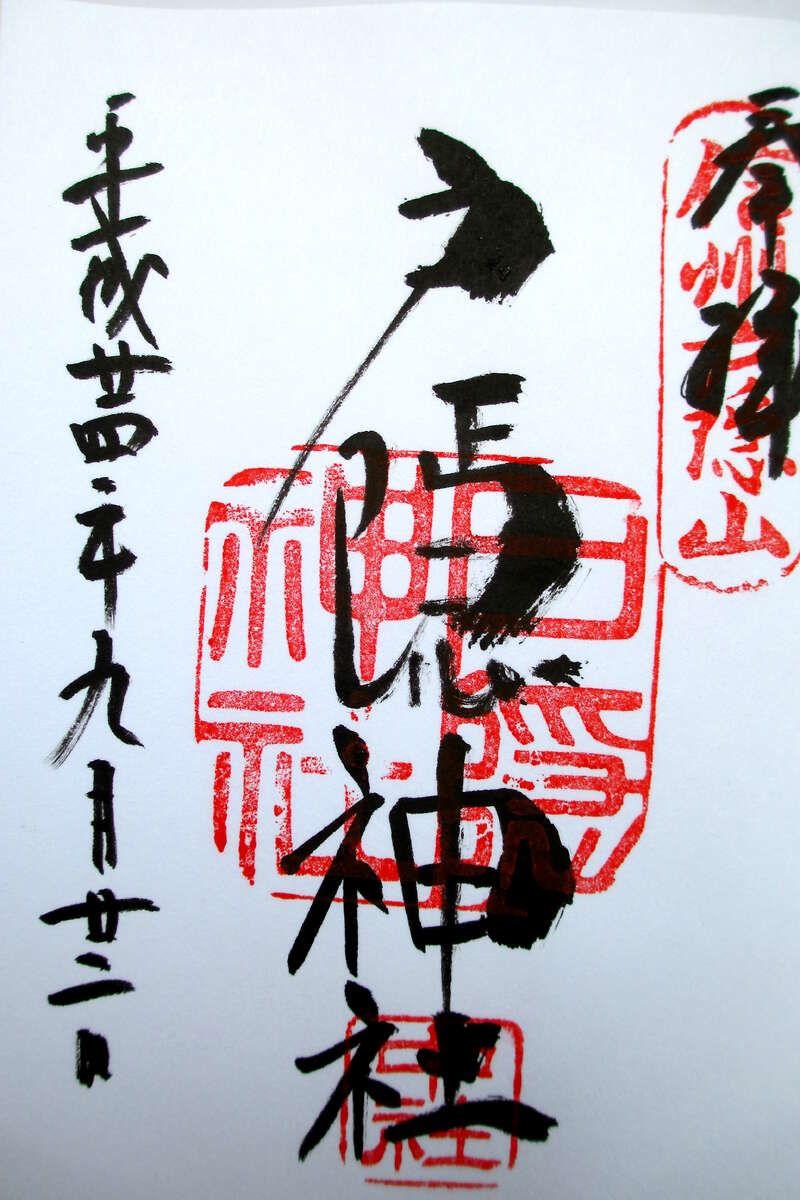 奉拝
信州戸隠山
戸隠神社
戸隠神社
平成廿四年九月廿二日